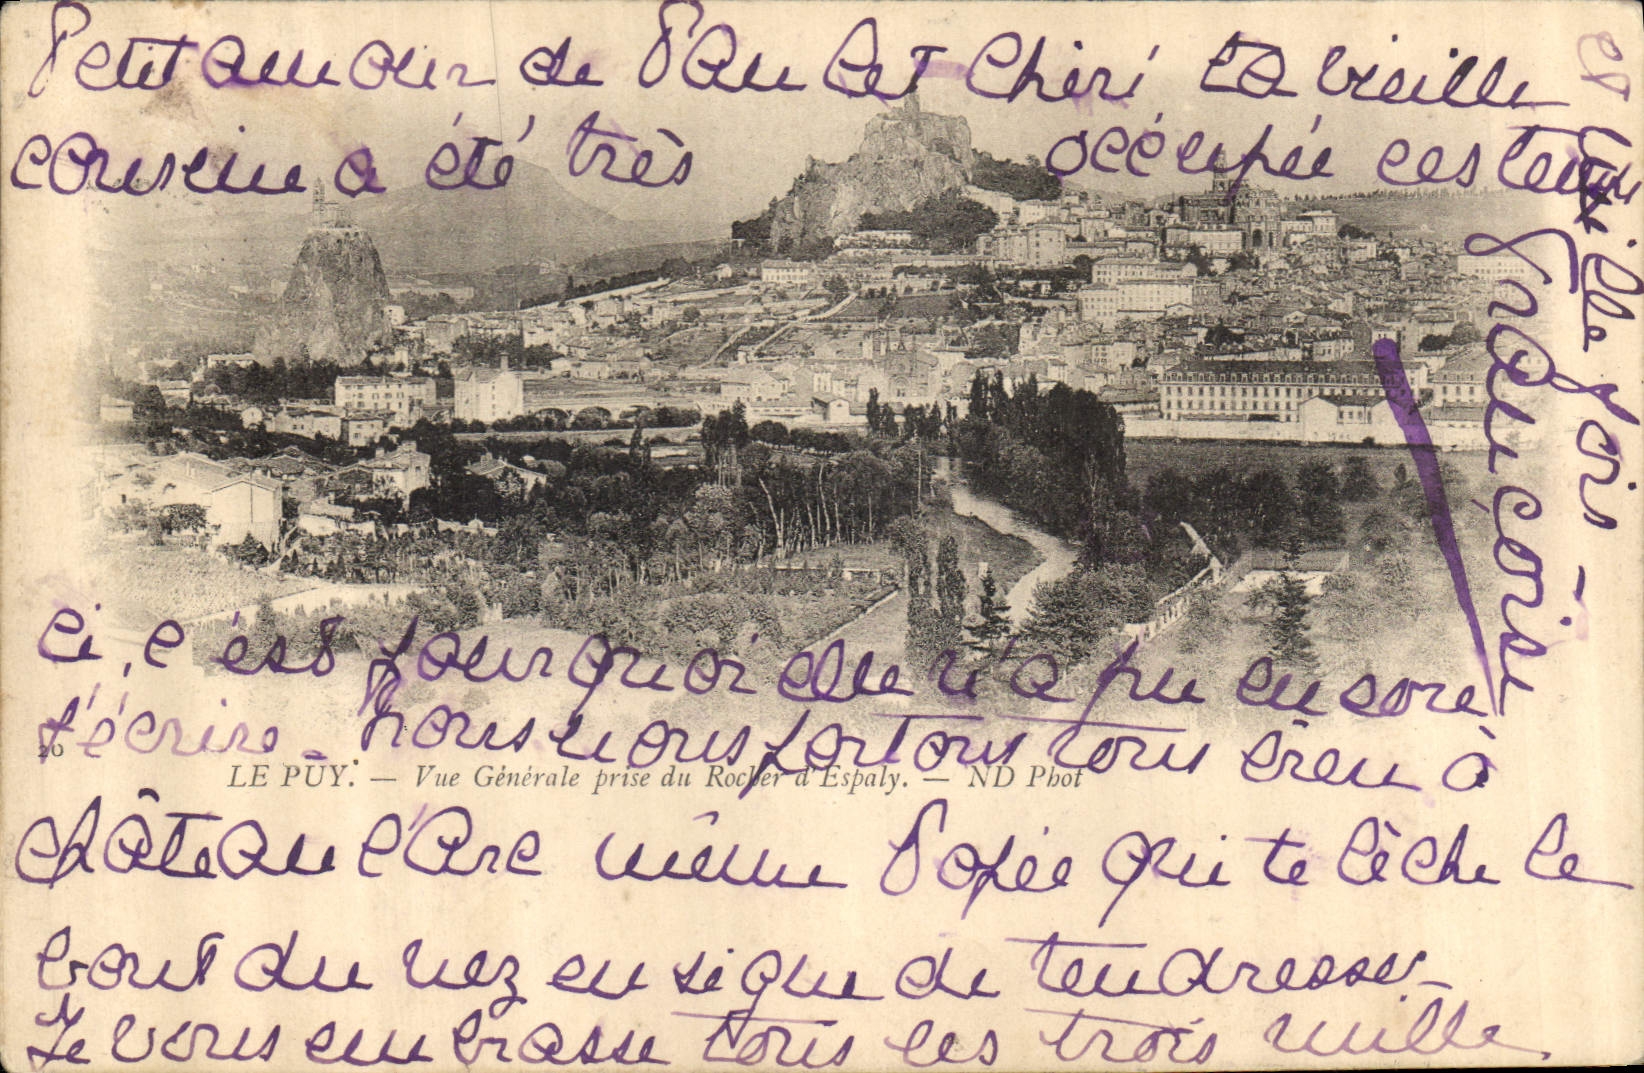 Petit amour de Paulet chéri ta vieille
cousine a été très occupée ces temps
ci, c'est pourquoi elle n'a pu encore
t'écrire - nous nous portons tous bien à
château l'Arc même Popée qui te lèche le
bout du nez en signe de tendresse -
Je vous embrasse tous les trois mille
et mille fois -
Françoise
20
LE PUY. — Vue Générale prise du Rocher d'Espaly. — ND Phot